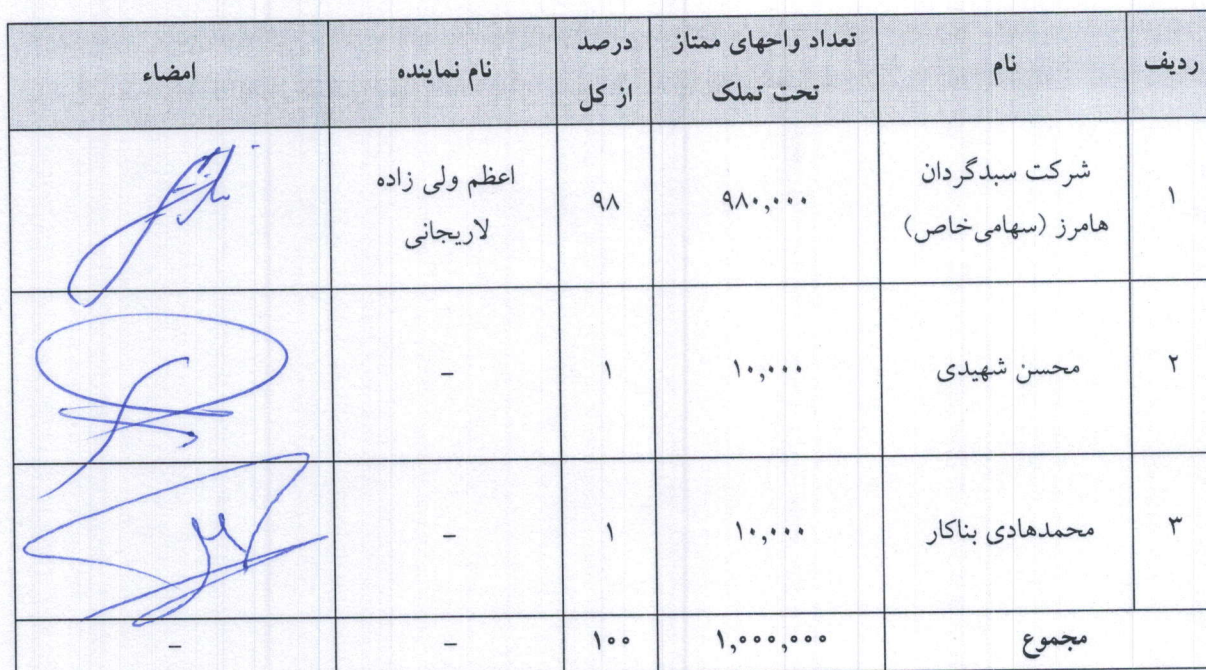 ردیف
نام
تعداد واحهای ممتاز
تحت تملک
درصد
از کل
نام نماینده
امضاء
۱
شرکت سبدگردان
هامرز (سهامی‌خاص)
۹۸۰,۰۰۰
۹۸
اعظم ولی زاده
لاریجانی
۲
محسن شهیدی
۱۰,۰۰۰
۱
–
۳
محمدهادی بناکار
۱۰,۰۰۰
۱
–
مجموع
۱,۰۰۰,۰۰۰
۱۰۰
–
–